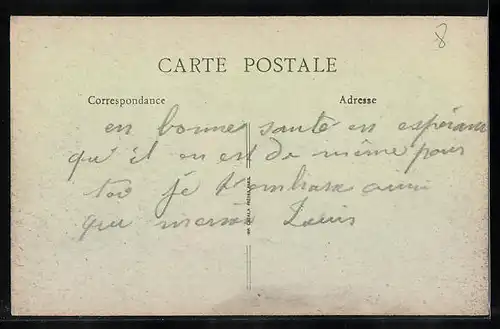 8
CARTE POSTALE
Correspondance
Adresse
en bonne santé en espérant
qu'il en est de même pour
toi je t'embrasse ainsi
que Louis